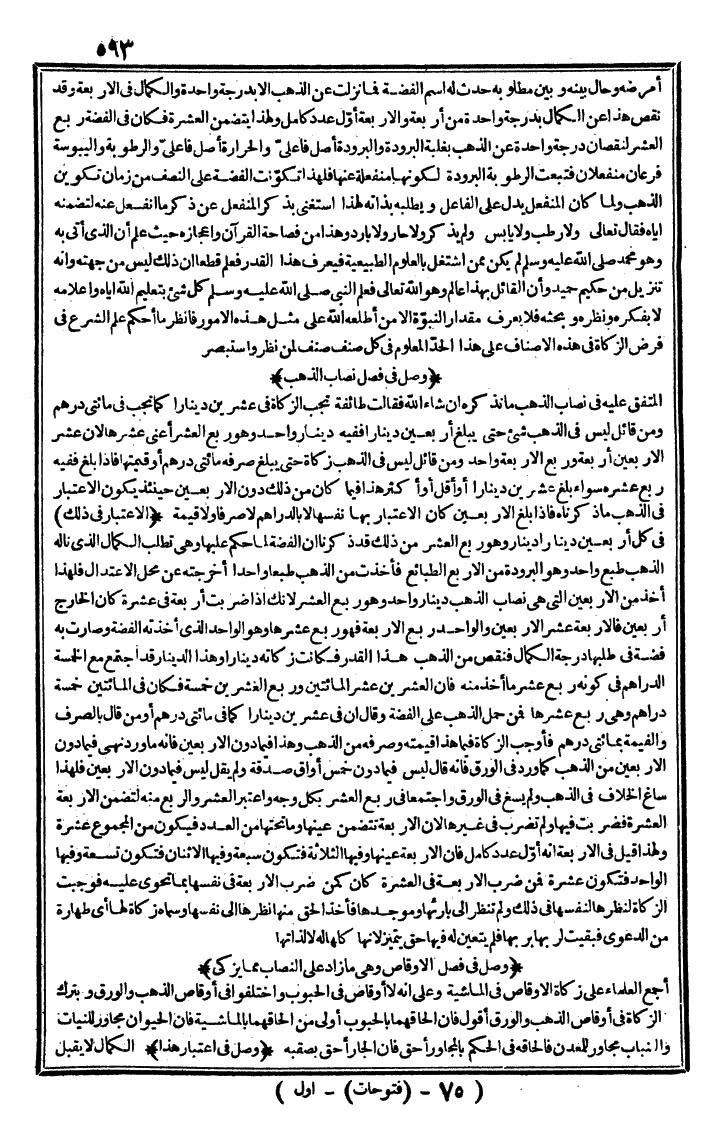 ٥٩٣
أمرضه وحال بينه وبين مطلوبه حدث له اسم الفضة فما نزلت عن الذهب الا بدرجة واحدة والكمال فى الاربعة وقد
نقص هذا عن الكمال بدرجة واحدة من أربعة والاربعة أوّل عدد كامل ولهذا يتضمن العشرة فكان فى الفضة ربع
العشر لنقصان درجة واحدة عن الذهب بغلبة البرودة والبرودة أصل فاعلىّ والحرارة أصل فاعلىّ والرطوبة واليبوسة
فرعان منفعلان فتبعت الرطوبة البرودة لكونها منفعلة عنها فلهذا تكوّنت الفضة على النصف من زمان تكوين
الذهب ولما كان المنفعل يدل على الفاعل ويطلبه بذاته لهذا استغنى بذكر المنفعل عن ذكر ما انفعل عنه لتضمنه
اياه فقال تعالى ولا رطب ولا يابس ولم يذكر ولا حار ولا بارد وهذا من فصاحة القرآن واعجازه حيث علم أن الذى أتى به
وهو محمد صلى الله عليه وسلم لم يكن ممن اشتغل بالعلوم الطبيعية فيعرف هذا القدر فعلم قطعا ان ذلك ليس من جهته وانه
تنزيل من حكيم حميد وأن القائل بهذا عالم وهو الله تعالى فعلم النبى صلى الله عليه وسلم كل شئ بتعليم الله اياه واعلامه
لا بفكره ونظره وبحثه فلا يعرف مقدار النبوّة الا من أطلعه الله على مثل هذه الامور فانظر ما أحكم علم الشرع فى
فرض الزكاة فى هذه الاصناف على هذا الحدّ المعلوم فى كل صنف صنف لمن نظر واستبصر
﴿وصل فى فصل نصاب الذهب﴾
المتفق عليه فى نصاب الذهب ما نذكره ان شاء الله فقالت طائفة تجب الزكاة فى عشرين دينارا كما تجب فى مائتى درهم
ومن قائل ليس فى الذهب شئ حتى يبلغ أربعين دينارا ففيه دينار واحد وهو ربع العشر أعنى عشرها لان عشر
الاربعين أربعة وربع الاربعة واحد ومن قائل ليس فى الذهب زكاة حتى يبلغ صرفه مائتى درهم أو قيمتها فاذا بلغ ففيه
ربع عشره سواء بلغ عشرين دينارا أو أقل أو أكثر هذا فيما كان من ذلك دون الاربعين حينئذ يكون الاعتبار
فى الذهب ما ذكرناه فاذا بلغ الاربعين كان الاعتبار بها نفسها لا بالدراهم لا صرفا ولا قيمة ﴿الاعتبار فى ذلك﴾
فى كل أربعين دينارا دينار وهو ربع العشر من ذلك قد ذكرنا ان الفضة لما حكم عليها وهى تطلب الكمال الذى ناله
الذهب طبع واحد وهو البرودة من الاربع الطبائع فأخذت من الذهب طبعا واحدا أخرجته عن محل الاعتدال فلهذا
أخذ من الاربعين التى هى نصاب الذهب دينار واحد وهو ربع العشر لانك اذا ضربت أربعة فى عشرة كان الخارج
أربعين فالاربعة عشر الاربعين والواحد ربع الاربعة فهو ربع عشرها وهو الواحد الذى أخذته الفضة وصارت به
فضة فى طلبها درجة الكمال فنقص من الذهب هذا القدر فكانت زكاته دينارا وهذا الدينار قد اجتمع مع الخمسة
الدراهم فى كونه ربع عشر ما أخذ منه فان العشرين عشر المائتين وربع العشرين خمسة فكان فى المائتين خمسة
دراهم وهى ربع عشرها فمن حمل الذهب على الفضة وقال ان فى عشرين دينارا كما فى مائتى درهم أو من قال بالصرف
والقيمة بمائتى درهم فأوجب الزكاة فما هذا قيمته وصرفه من الذهب وهذا فيما دون الاربعين فانه ما ورد نهى فيما دون
الاربعين من الذهب كما ورد فى الورق فانه قال ليس فيما دون خمس أواق صدقة ولم يقل ليس فيما دون الاربعين فلهذا
ساغ الخلاف فى الذهب ولم يسغ فى الورق واجتمعا فى ربع العشر بكل وجه واعتبر العشر والربع منه لتضمن الاربعة
العشرة فضربت فيها ولم تضرب فى غيرها لان الاربعة تتضمن عينها وما تحتها من العدد فيكون من المجموع عشرة
ولهذا قيل فى الاربعة انه أوّل عدد كامل فان الاربعة عينها وفيها الثلاثة فتكون سبعة وفيها الاثنان فتكون تسعة وفيها
الواحد فتكون عشرة فمن ضرب الاربعة فى العشرة كان كمن ضرب الاربعة فى نفسها بما تحوى عليه فوجبت
الزكاة لنظرها لنفسها فى ذلك ولم تنظر الى بارئها وموجدها فأخذ الحق منها نظرها الى نفسها وسماه زكاة لها أى طهارة
من الدعوى فبقيت لربها بربها فلم يتعين له فيها حق يتميز لانها كلها له لا لذاتها
﴿وصل فى فصل الاوقاص وهى ما زاد على النصاب مما يزكى﴾
أجمع العلماء على زكاة الاوقاص فى الماشية وعلى انه لا أوقاص فى الحبوب واختلفوا فى أوقاص الذهب والورق وبترك
الزكاة فى أوقاص الذهب والورق أقول فان الحاقهما بالحبوب أولى من الحاقهما بالماشية فان الحيوان مجاور للنبات
والنبات مجاور للمعدن فالحاقه فى الحكم بالمجاور أحق فان الجار أحق بصقبه ﴿وصل فى اعتبار هذا﴾ الكمال لا يقبل
( ٧٥ - (فتوحات) - اول )